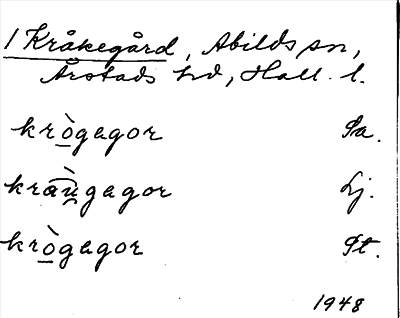 1 Kråkegård, Abilds sn,
Årstads hd, Hall. l.
krò̲gagor Sa.
kraùgagor Lj.
krò̲gagor St.
1948